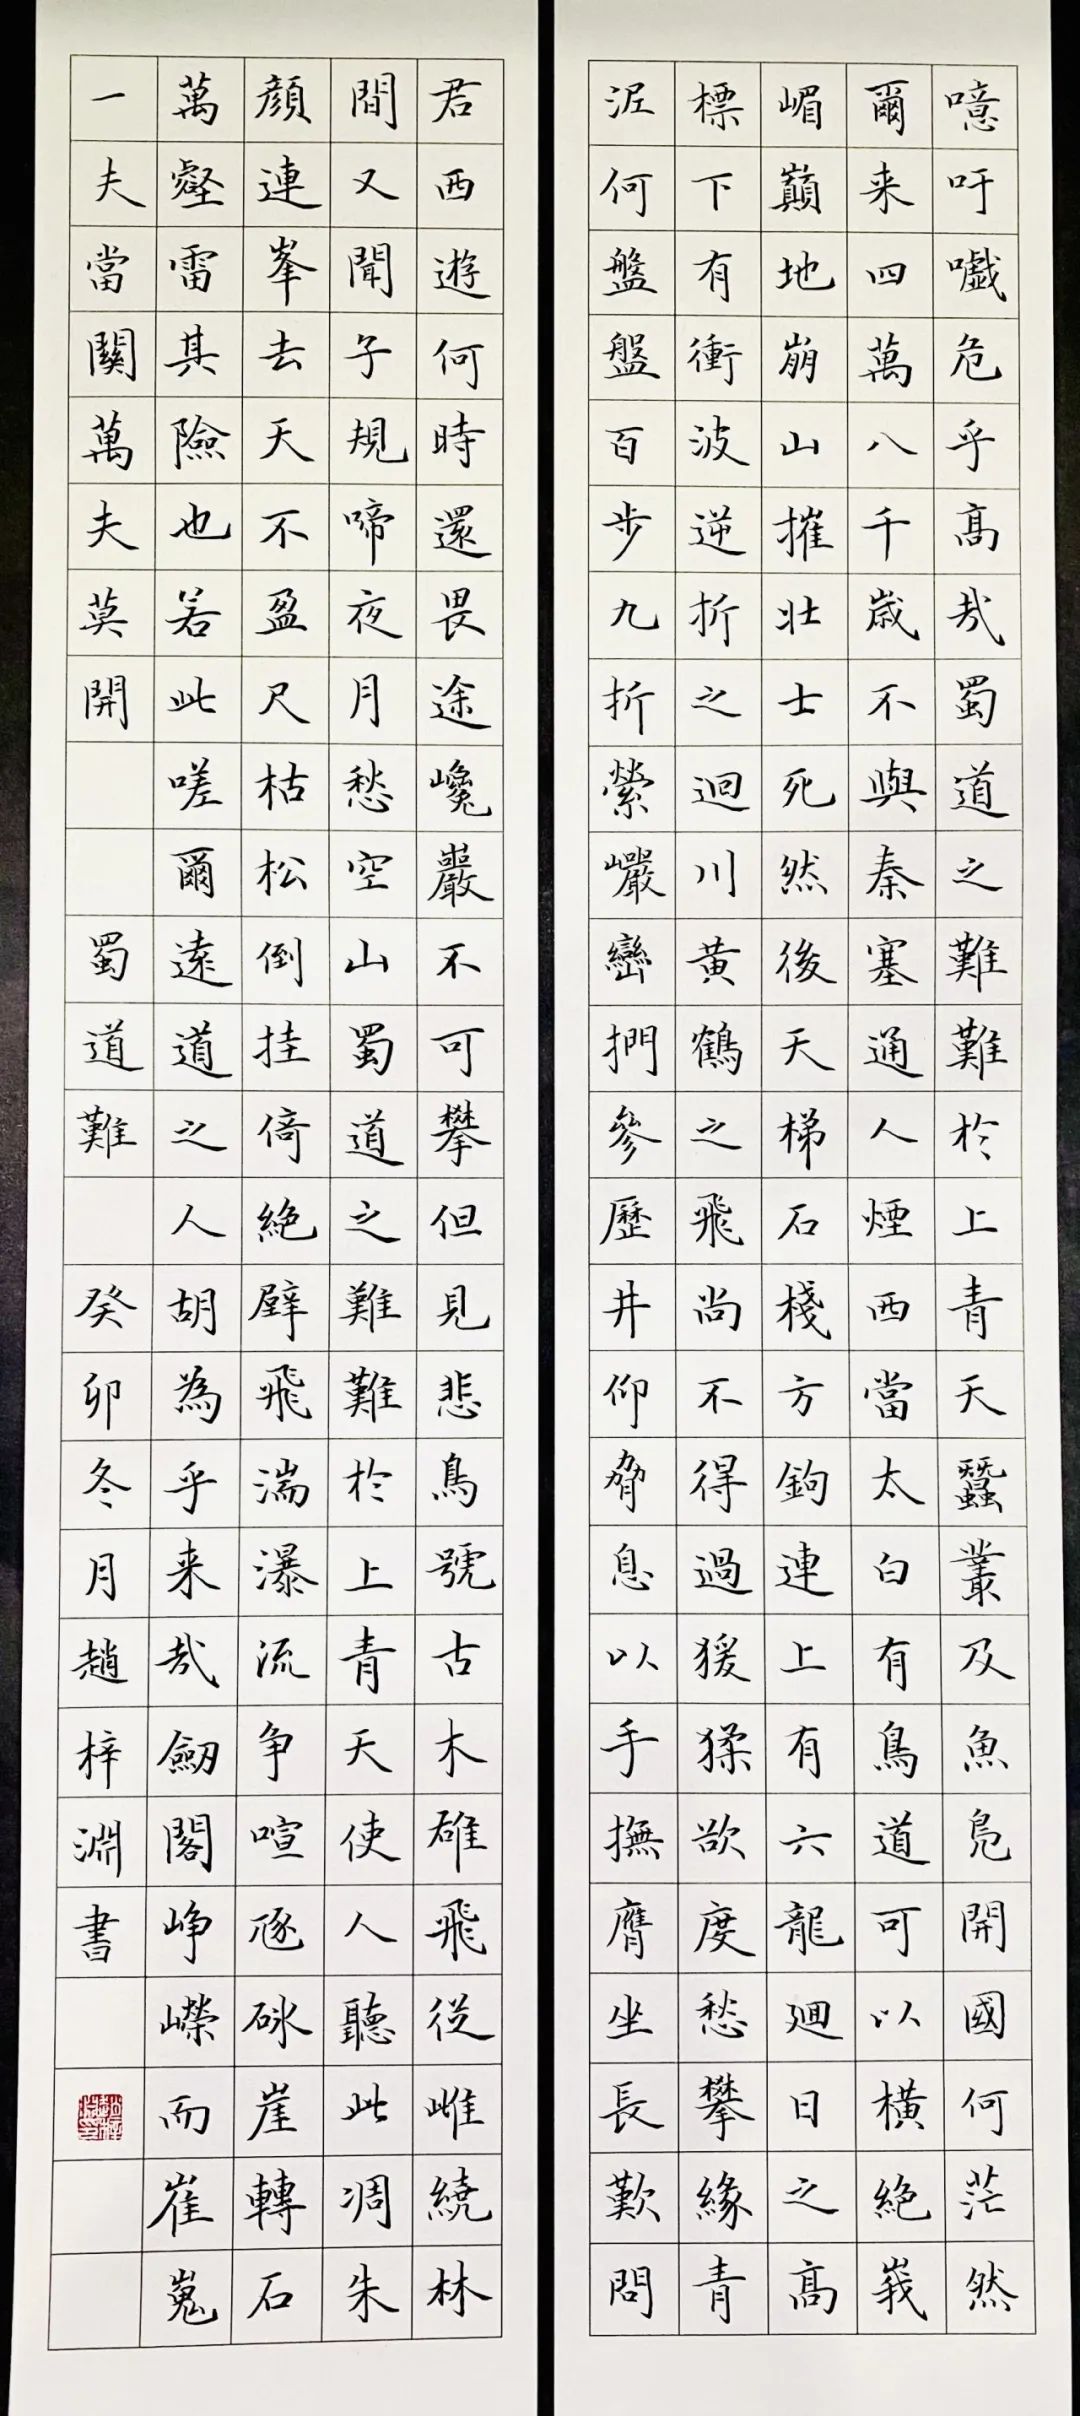 噫吁嚱危乎高哉蜀道之難難於上青天蠶叢及魚鳧開國何茫然
爾来四萬八千歲不與秦塞通人煙西當太白有鳥道可以橫絕峩
嵋巔地崩山摧壯士死然後天梯石棧方鉤連上有六龍迴日之高
標下有衝波逆折之迴川黃鶴之飛尚不得過猨猱欲度愁攀緣青
泥何盤盤百步九折縈巖巒捫參歷井仰脅息以手撫膺坐長歎問
君西遊何時還畏途巉巖不可攀但見悲鳥號古木雄飛從雌繞林
間又聞子規啼夜月愁空山蜀道之難難於上青天使人聽此凋朱
顏連峯去天不盈尺枯松倒挂倚絕壁飛湍瀑流争喧豗砯崖轉石
萬壑雷其險也若此嗟爾遠道之人胡為乎来哉劒閣崢嶸而崔嵬
一夫當關萬夫莫開 蜀道難 癸卯冬月趙梓淵書